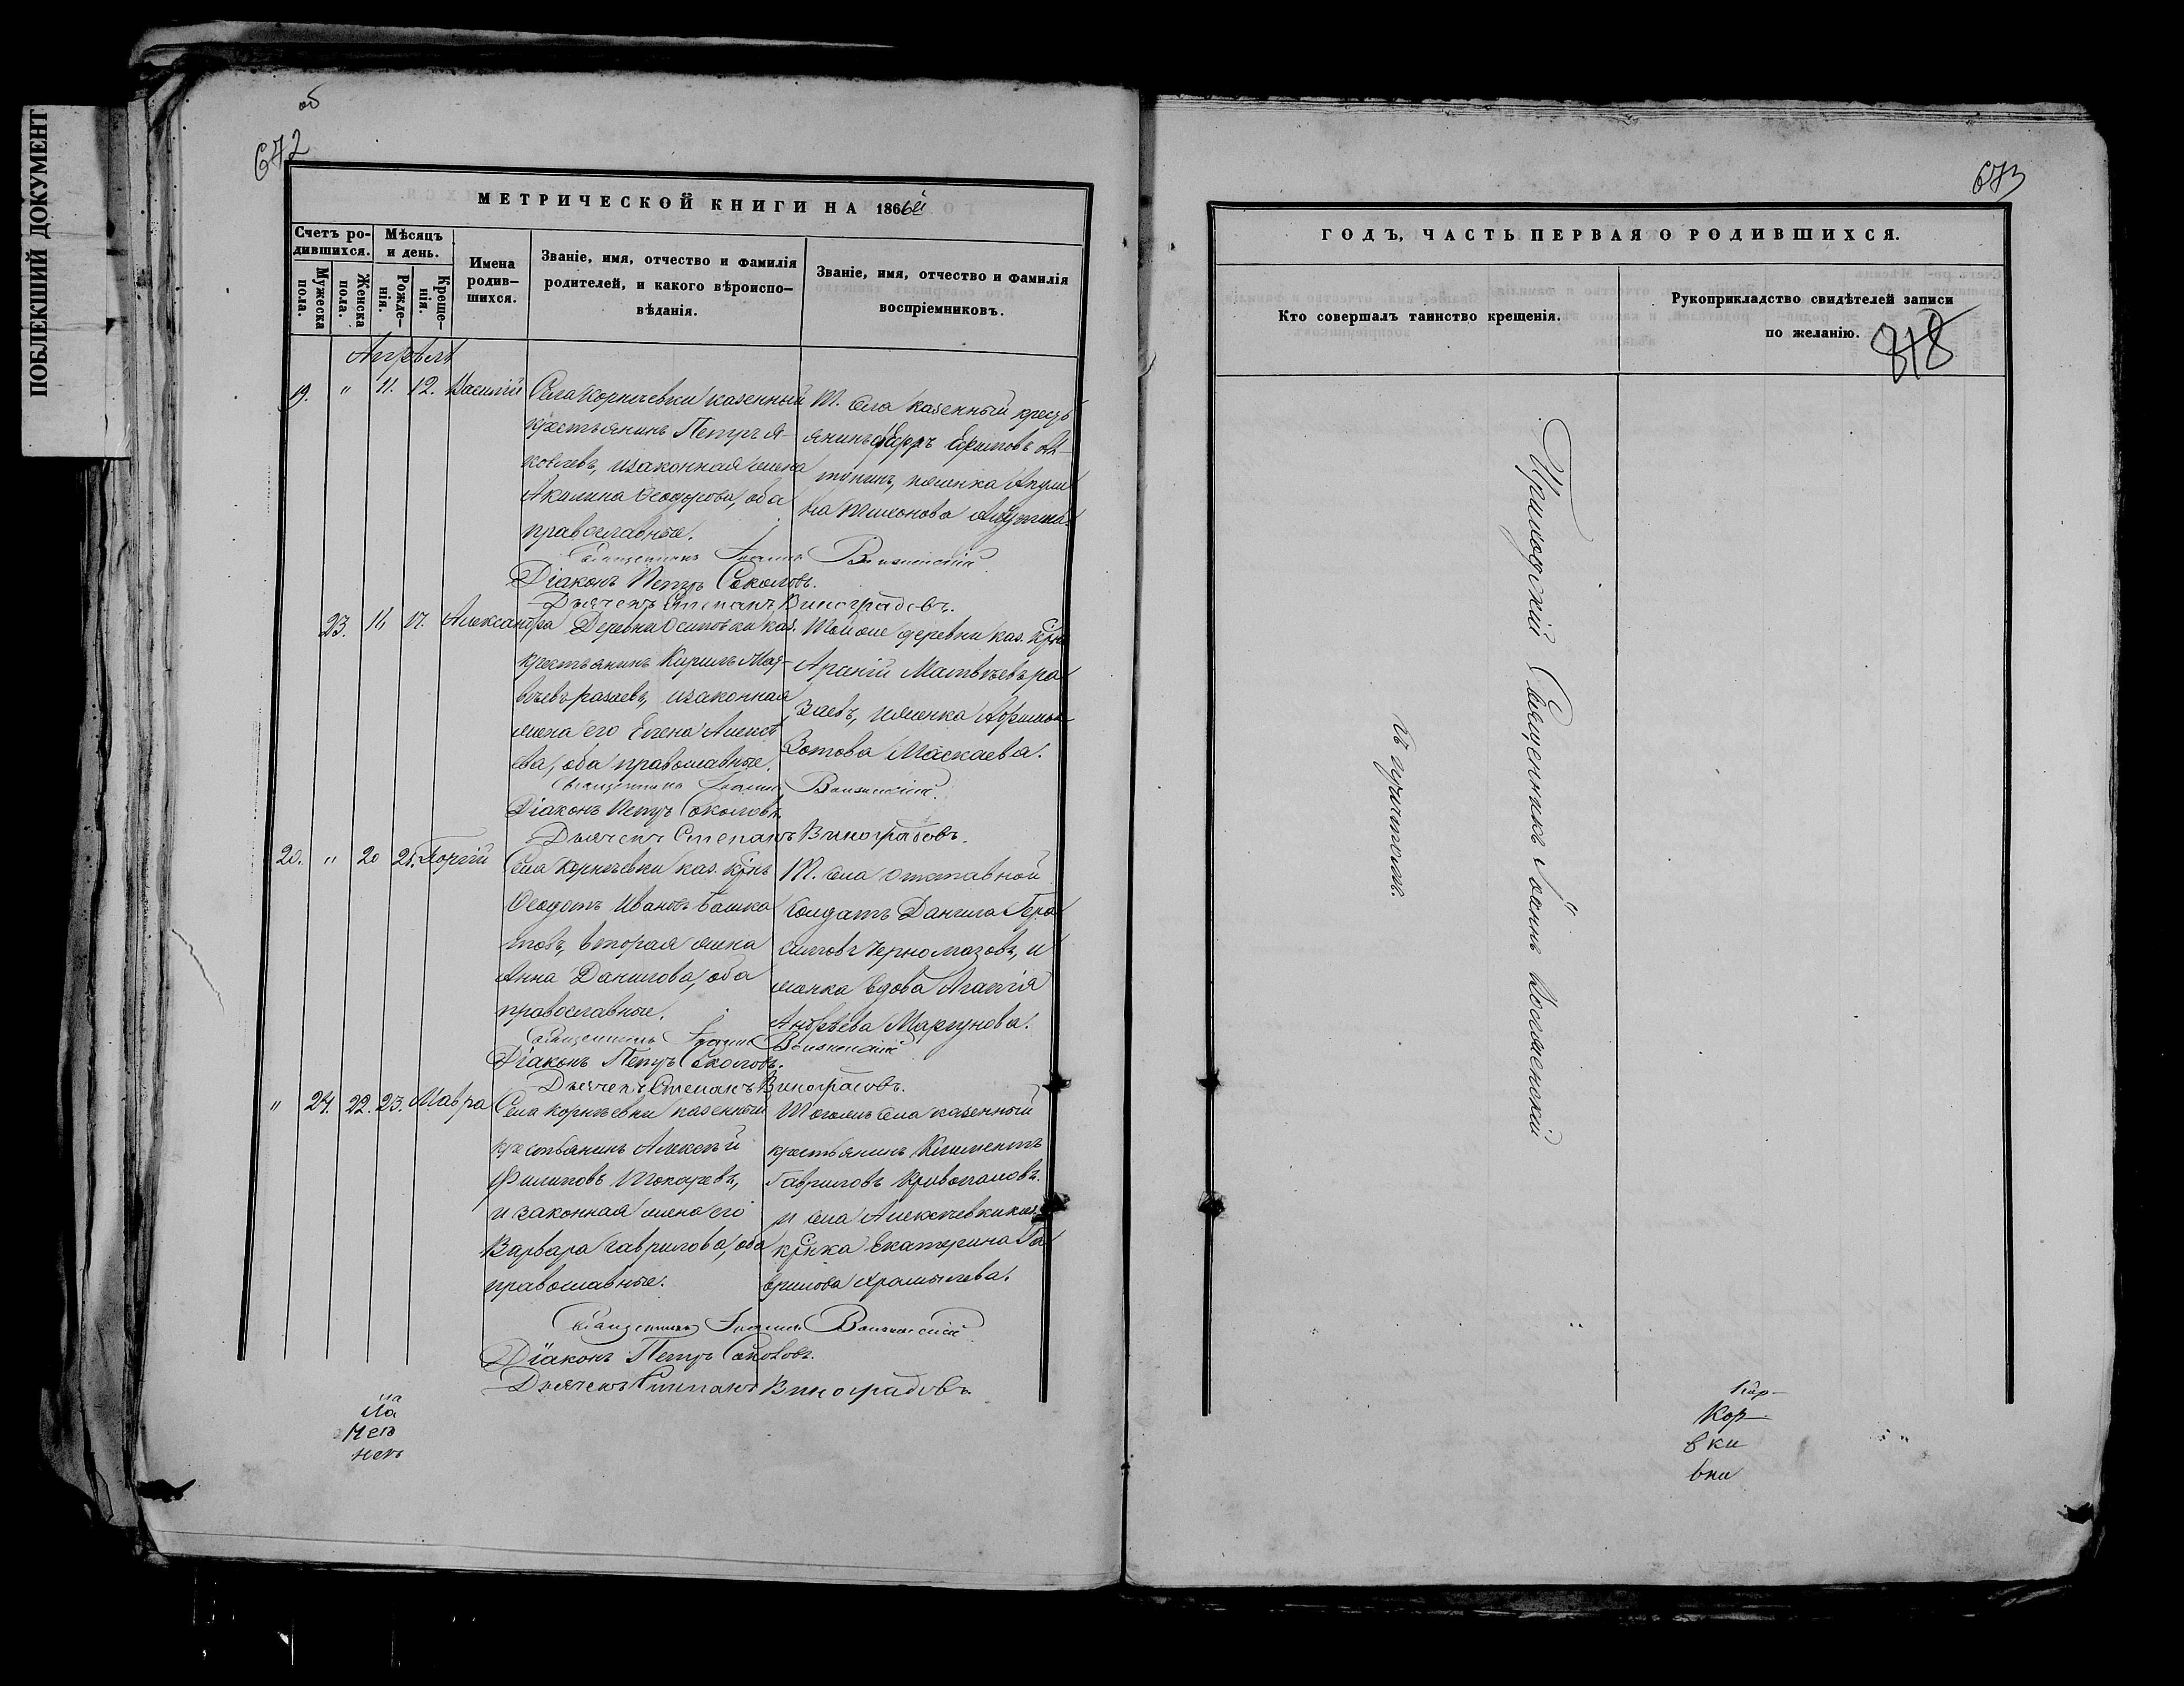 ПОБЛЕКШИЙ ДОКУМЕНТ
об
672
МЕТРИЧЕСКОЙ КНИГИ НА 1866й
Счетъ ро-
дившихся.
Мѣсяцъ
и день.
Мужеска
пола.
Женска
пола.
Рожде-
нія.
Креще-
нія.
Имена
родив-
шихся.
Званіе, имя, отчество и фамилія
родителей, и какого вѣроиспо-
вѣданія.
Званіе, имя, отчество и фамилія
воспріемниковъ.
Апрѣль
19. " 11. 12. Василій
Села Корнѣевки казенный
крестьянинъ Петръ Я-
ковлевъ, и законная жена
Акилина Ѳеодорова, оба
православные.
Т. села казенный кресть
янинъ
Тихонова
Священникъ Іоаннъ Вознесенскій
Діаконъ Петръ Соколовъ.
Дьячекъ Степанъ Виноградовъ.
23. 16 17. Александра
Деревни Осиповки каз.
крестьянинъ Кирилъ Мат-
вѣевъ Разаевъ, и законная
жена его Елена Алексѣ
ева, оба православные.
Той же деревни каз. крнъ
Матвѣевъ Ра
заевъ, и женка
Зотова Маскаева.
Священникъ Іоаннъ Вознесенскій
Діаконъ Петръ Соколовъ.
Дьячекъ Степанъ Виноградовъ.
20. " 20 21. Георгій
Села Корнѣевки каз. крнъ
Ѳеодотъ Ивановъ Башка
товъ, вторая жена
Анна Данилова, оба
православные.
Т. села отставной
солдатъ Данила Гера
симовъ Черномазовъ, и
женка вдова Агапія
Андрѣева Маргунова.
Священникъ Іоаннъ Вознесенскій
Діаконъ Петръ Соколовъ.
Дьячекъ Степанъ Виноградовъ.
" 24. 22. 23. Мавра
Села Корнѣевки казенный
крестьянинъ Алексѣй
Филиповъ Токаревъ,
и законная жена его
Варвара Гаврилова, оба
православные.
Тогожъ села казенный
крестьянинъ Климентъ
Гавриловъ Кривопаловъ.
и села Алексѣевки каз.
крнка Екатерина Га
врилова Храмылева.
Священникъ Іоаннъ Вознесенскій
Діаконъ Петръ Соколовъ.
Дьячекъ Степанъ Виноградовъ
673
ГОДЪ, ЧАСТЬ ПЕРВАЯ О РОДИВШИХСЯ.
Кто совершалъ таинство крещенія.
Рукоприкладство свидѣтелей записи
по желанію.
818
Приходскій Священникъ Іоаннъ Вознесенскій
съ причтомъ.
Кор-
вки
вки